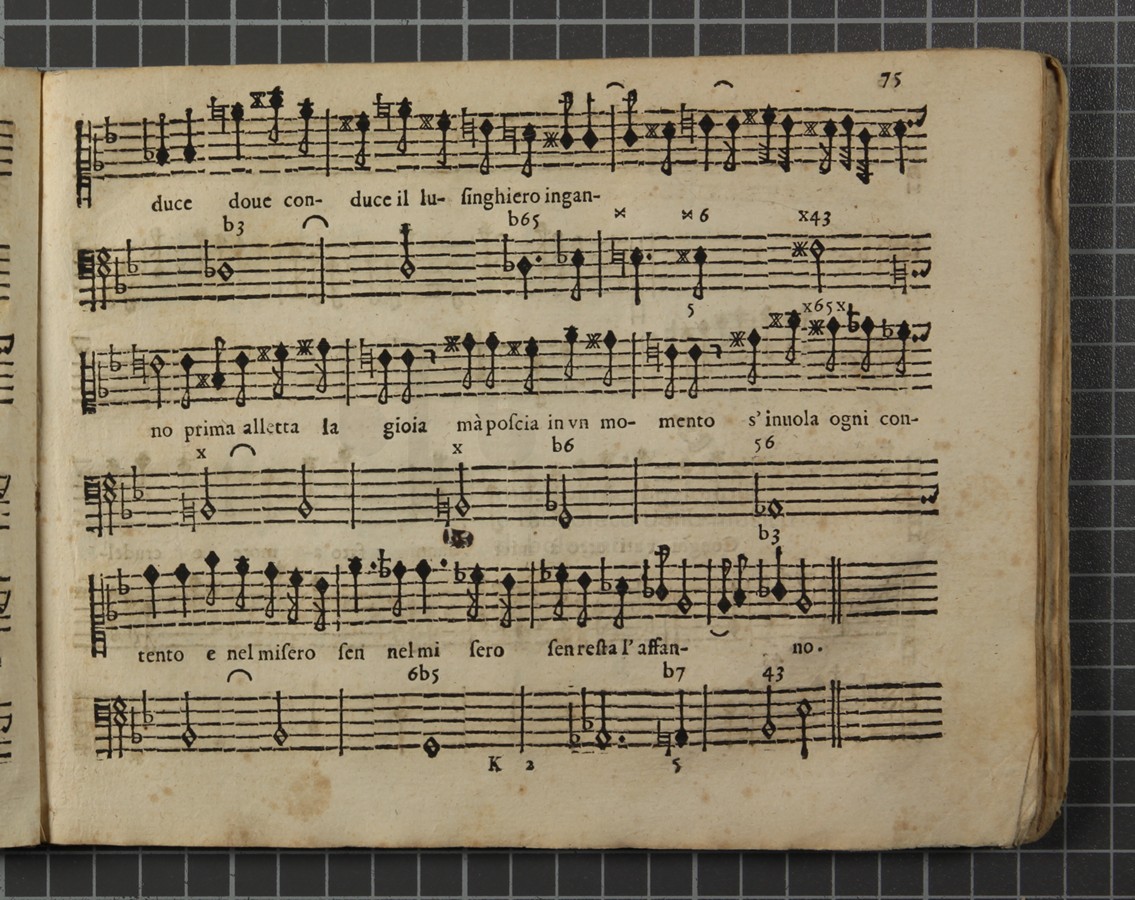 75
duce doue con- duce il lu- ſinghiero ingan-
b3 b65 x x 6 x43
5 x65x
no prima alletta la gioia mà poſcia in vn mo- mento s'inuola ogni con-
x x b6 56
b3
tento e nel miſero ſen nel mi ſero ſen reſta l'affan- no.
6b5 b7 43
K 2 5